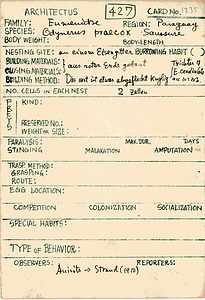 ARCHITECTUS 427 CARD No. 1235
FAMILY: Eumenidae REGION: Paraguay
SPECIES: Odynerus praecox Saussure
BODY WEIGHT: BODY-LENGTH
NESTING SITE: an einem BURROWING HABIT ( )
BUILDING MATERIALS: aus roter Erde gebaut
CLOSING MATERIALS:
BUILDING METHOD: Das Nest ist etwas abgeflacht kuglig
NO. CELLS IN EACH NEST 2 Zellen
PREYS KIND:
PRESERVED NO.:
WEIGHT OR SIZE:
PARALYSIS: MAX. DUR. DAYS
STINGING MALAXATION AMPUTATION
TRASP. METHOD:
GRASPING:
ROUTE:
EGG LOCATION:
COMPETITION COLONIZATION SOCIALIZATION
SPECIAL HABITS:
TYPE OF BEHAVIOR:
OBSERVERS: REPORTERS:
Strand (1910)